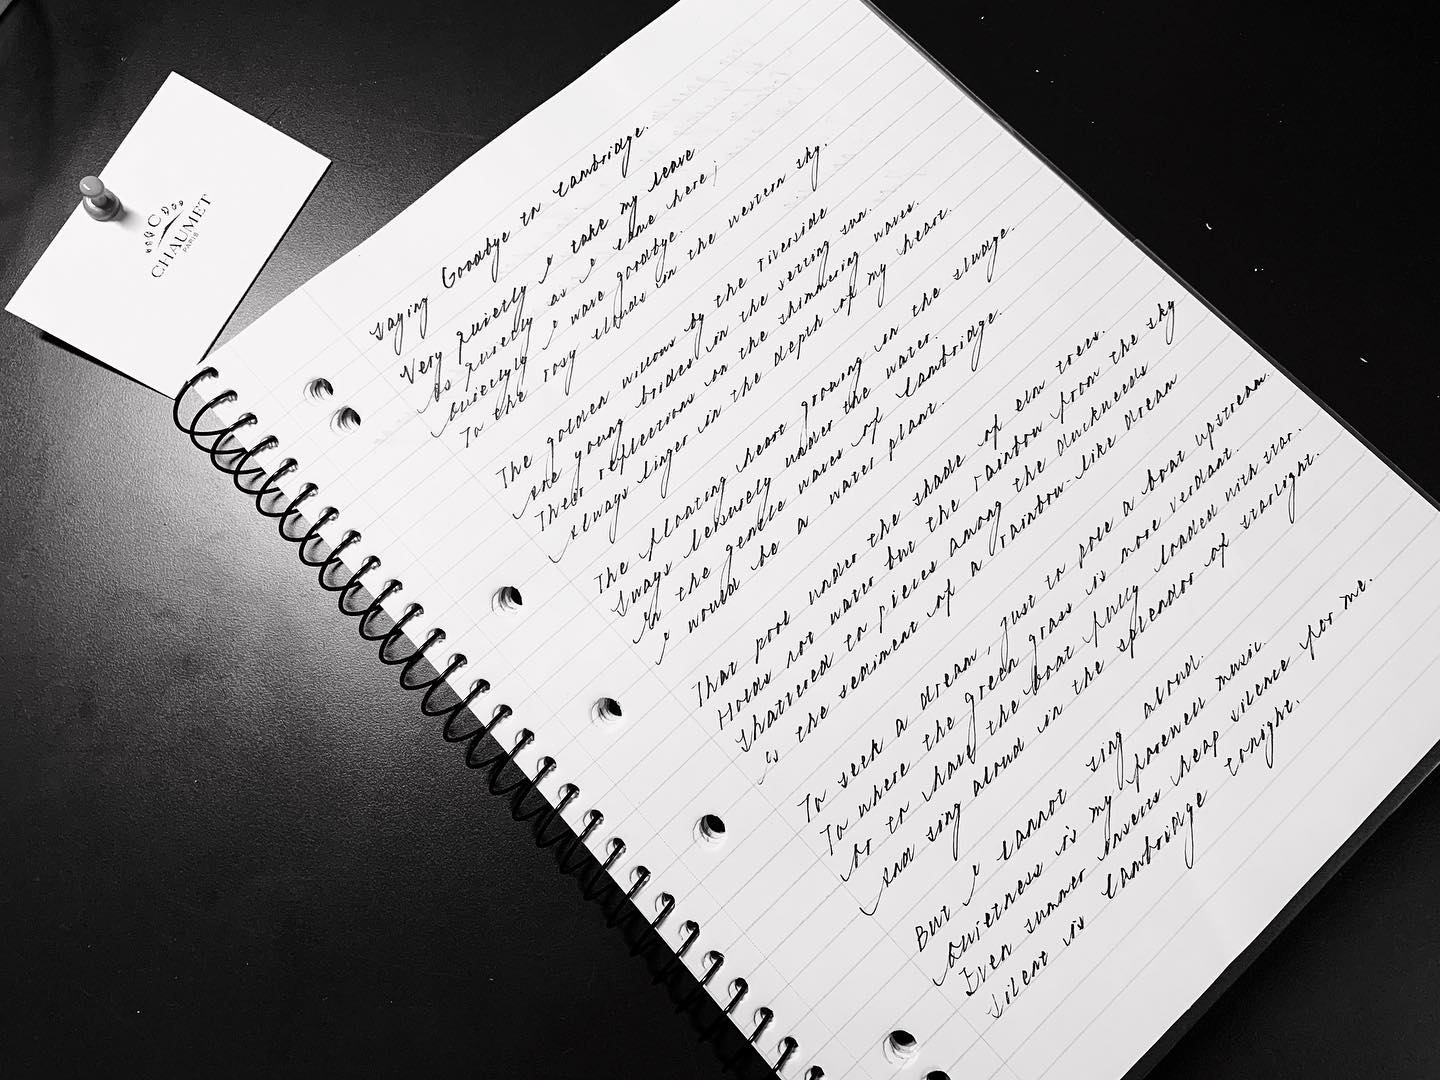 CHAUMET
PARIS
Saying Goodbye to Cambridge.
Very quietly I take my leave
As quietly as I came here;
Quietly I wave goodbye.
To the rosy clouds in the western sky.
The golden willows by the riverside
are young brides in the setting sun.
Their reflections on the shimmering waves.
Always linger in the depth of my heart.
The floating heart growing in the sludge.
Sways leisurely under the water.
In the gentle waves of Cambridge.
I would be a water plant.
That pool under the shade of elm trees.
Holds not water but the rainbow from the sky
Shattered to pieces among the duckweeds
is the sediment of a rainbow-like dream
To seek a dream, just to pole a boat upstream.
To where the green grass is more verdant.
Or to have the boat fully loaded with star.
And sing aloud in the splendor of starlight.
But I cannot sing aloud.
Quietness is my farewell music.
Even summer insects heap silence for me.
Silent is Cambridge tonight.